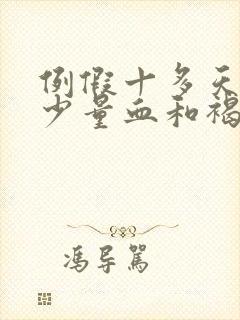 例假十多天
少量血和褐
冯导骂